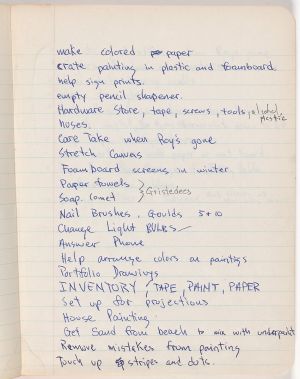 make colored paper
crate painting in plastic and foamboard
help sign prints.
empty pencil sharpener.
Hardware Store, tape, screws, tools, alcohol
hoses.
Care Take when Roy's gone
Stretch Canvas
Foamboard screens in winter
Paper towels } Gristedees
Soap. Comet
Nail Brushes. Goulds 5+10
Change Light BULBS
Answer Phone
Help arrange colors on paintings
Portfolio Drawings
INVENTORY / TAPE, PAINT, PAPER
Set up for projections
House Painting
Get Sand from beach to mix with underpaint
Remove mistakes from painting
Touch up stripes and dots.